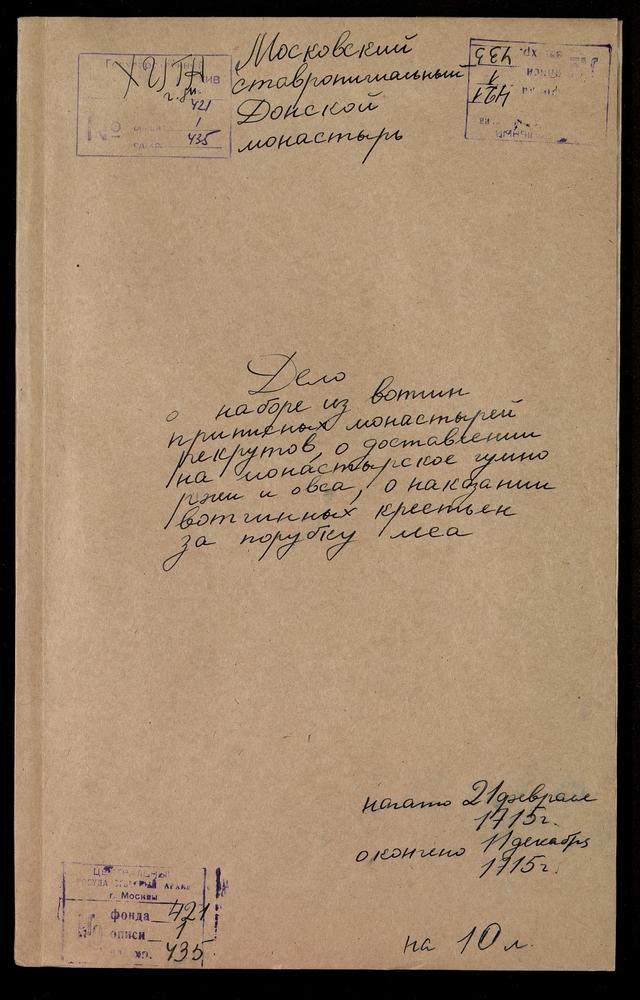 Московский
ставропигиальный
Донской
монастырь
ЦГИА
г. М.
421
1
№
435
ед. хр. 435
описи 1
фонда 421
Дело
о наборе из вотчин
приписных монастырей
рекрутов, о доставлении
на монастырское гумно
ржи и овса, о наказании
вотчинных крестьен
за порубку леса
начато 21 февраля
1715г.
окончено 11 декабря
1715г.
ЦЕНТРАЛЬНЫЙ
ГОСУДАРСТВЕННЫЙ АРХИВ
г. Москвы
фонда 421
№ описи 1
ед. хр. 435
на 10 л.